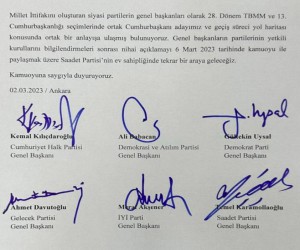 Millet İttifakını oluşturan siyasi partilerin genel başkanları olarak 28. Dönem TBMM ve 13.
Cumhurbaşkanlığı seçimlerinde ortak Cumhurbaşkanı adayımız ve geçiş süreci yol haritası
konusunda ortak bir anlayışa ulaşmış bulunuyoruz. Genel başkanların partilerinin yetkili
kurullarını bilgilendirmeleri sonrası nihai açıklamayı 6 Mart 2023 tarihinde kamuoyu ile
paylaşmak üzere Saadet Partisi'nin ev sahipliğinde tekrar bir araya geleceğiz.
Kamuoyuna saygıyla duyuruyoruz.
02.03.2023 / Ankara
Kemal Kılıçdaroğlu Ali Babacan Gültekin Uysal
Cumhuriyet Halk Partisi Demokrasi ve Atılım Partisi Demokrat Parti
Genel Başkanı Genel Başkanı Genel Başkanı
Ahmet Davutoğlu Meral Akşener Temel Karamollaoğlu
Gelecek Partisi İYİ Parti Saadet Partisi
Genel Başkanı Genel Başkanı Genel Başkanı